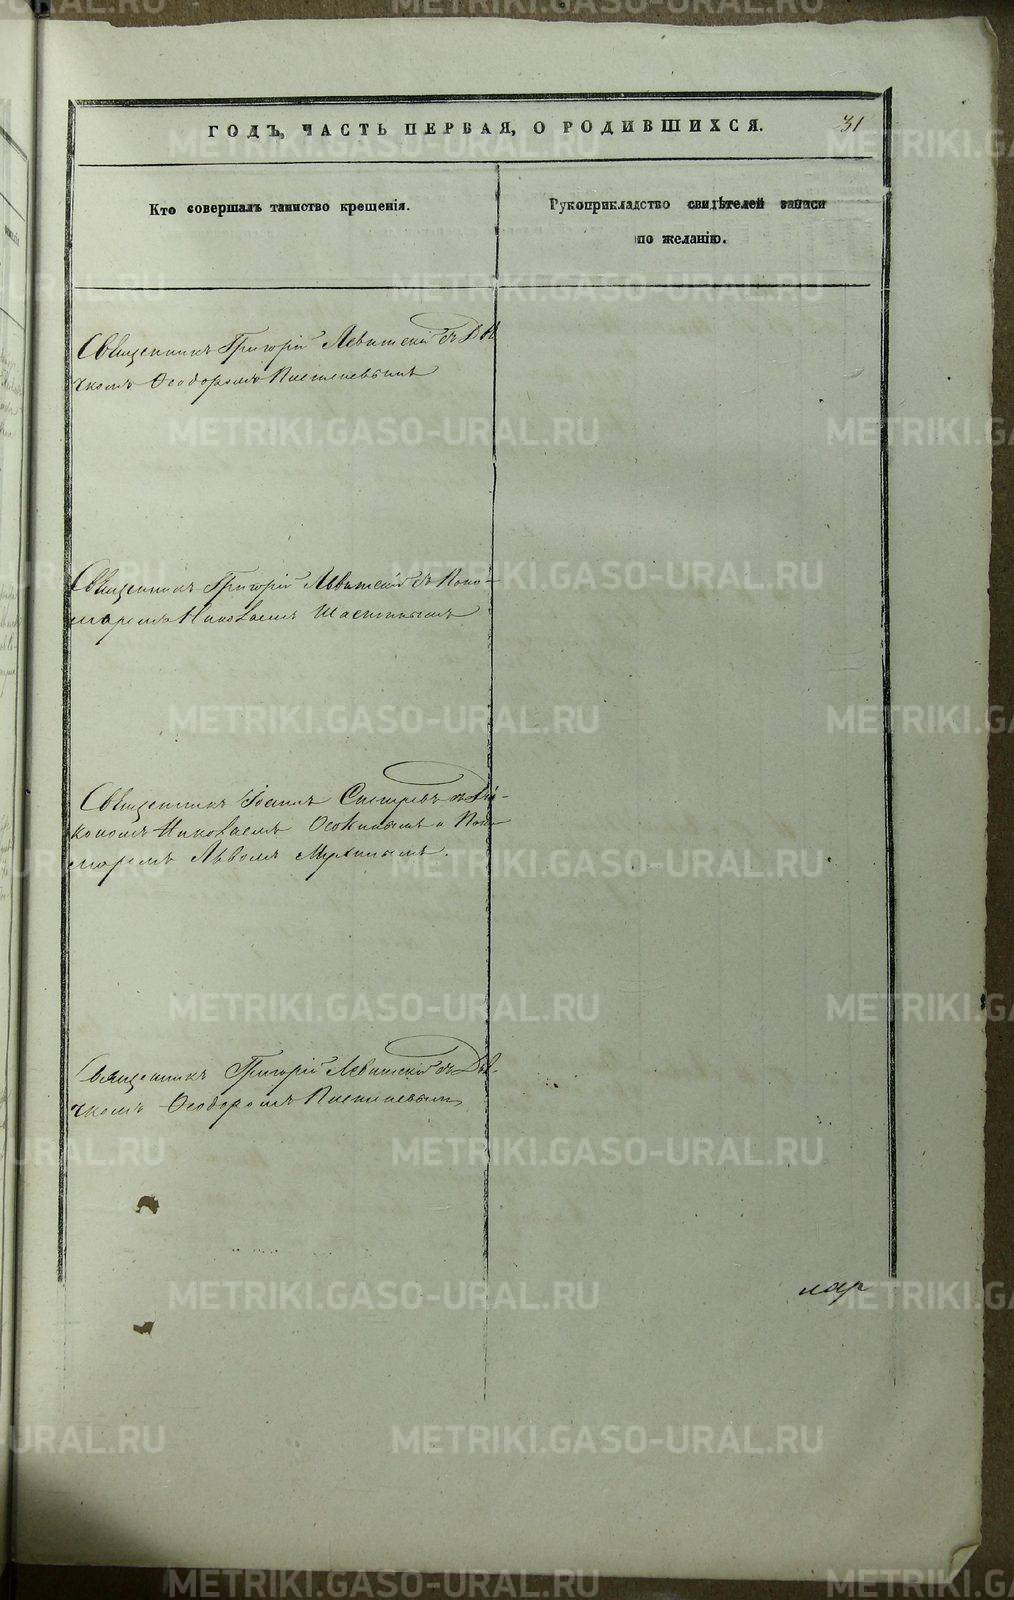 ГОДЪ, ЧАСТЬ ПЕРВАЯ, О РОДИВШИХСЯ.
31
Кто совершалъ таинство крещенія.
Рукоприкладство свидѣтелей записи
по желанію.
Священникъ Григорій Левитскій съ Дья
чкомъ Ѳеодоромъ
Священникъ Григорій Левитскій съ Поно-
маремъ Николаемъ Шастинымъ
Священникъ Іоаннъ съ Діа-
кономъ Николаемъ Осокинымъ и Поно
маремъ Львомъ
Священникъ Григорій Левитскій съ Дья-
чкомъ Ѳеодоромъ
METRIKI.GASO-URAL.RU